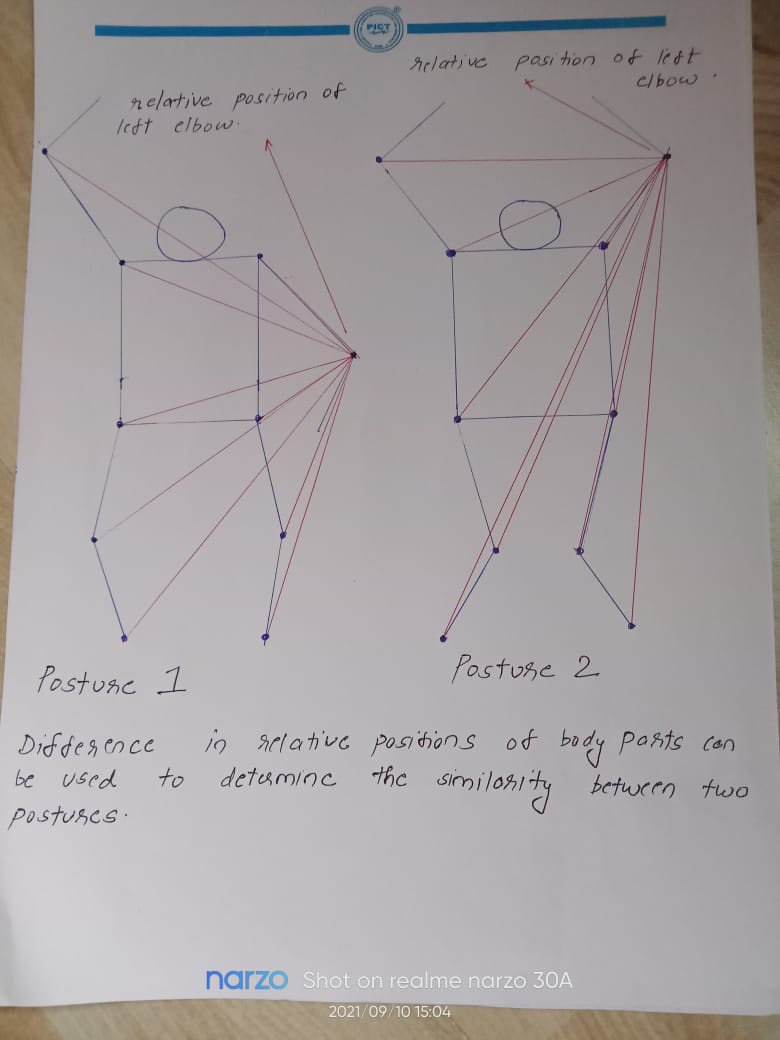 PICT
relative position of left
elbow.
relative position of
left elbow.
Posture 1
Posture 2
Difference in relative positions of body parts can
be used to determine the similarity between two
postures.
narzo Shot on realme narzo 30A
2021/09/10 15:04